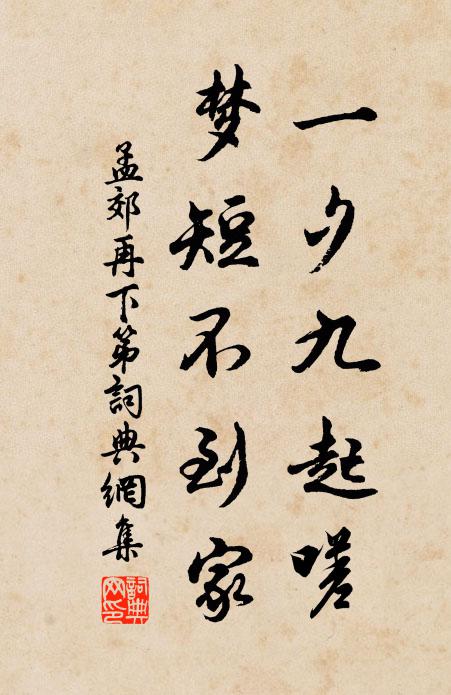 一夕九起嗟
梦短不到家
孟郊再下第詞典網集
詞典網印